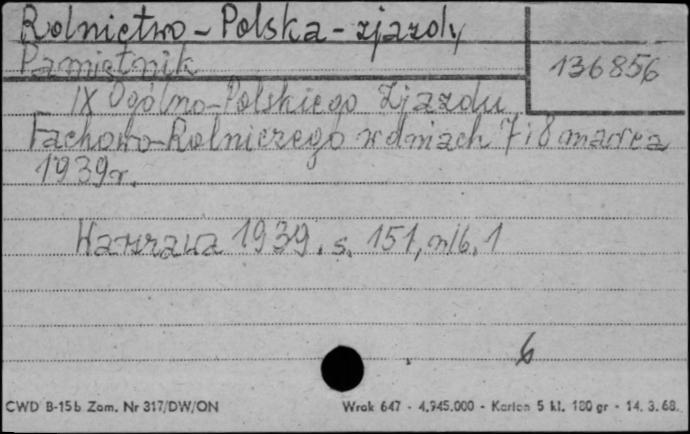 Rolnictwo - Polska - zjazdy
Pamiętnik
136856
IX Ogólno-Polskiego Zjazdu
Fachowo-Rolniczego w dniach 7 i 8 marca
1939 r.
Warszawa 1939. s. 151, nlb. 1
6
CWD B-15b Zam. Nr 317/DW/ON
Wrak 647 - 4.945.000 - Karton 5 kl. 180 gr - 14. 3. 68.